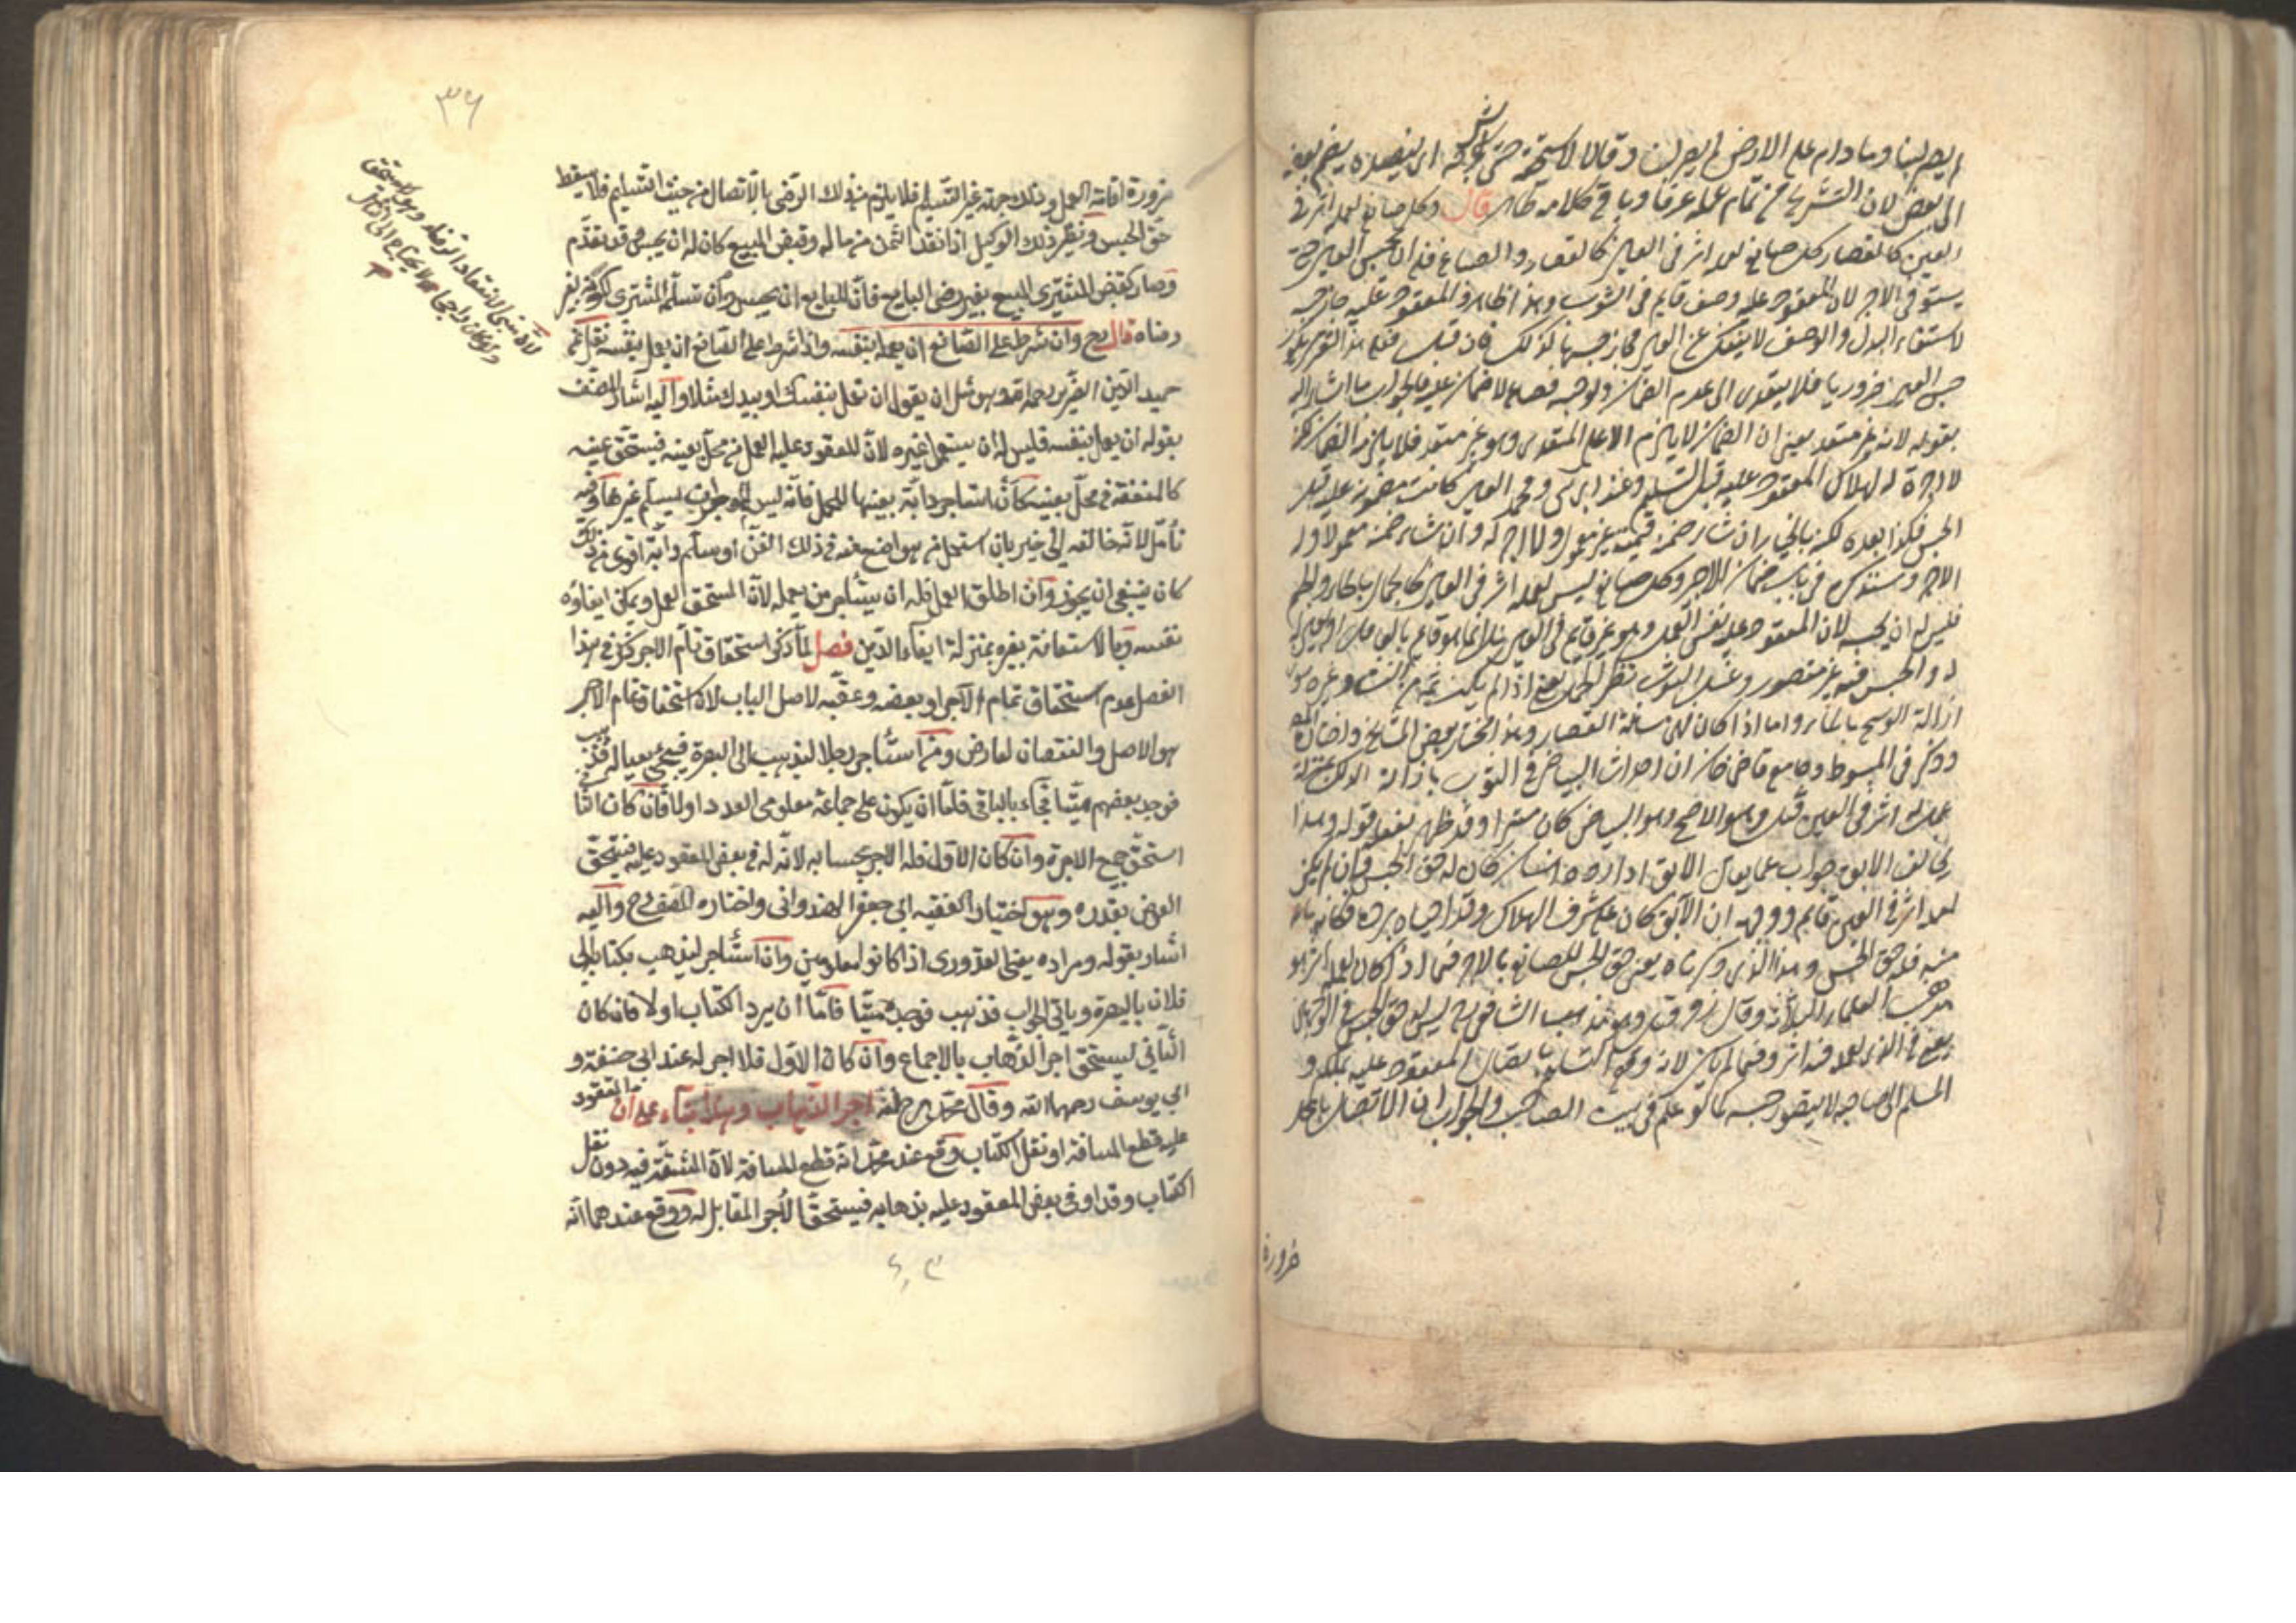 لم يصر لبنا وما دام على الارض لم يصر لبنا وقالا لا يستحقه حتى يشرجه اى ينضده يضم بعضه
الى بعض لان التشريج من تمام عمله عرفا وباقى كلامه ظاهر قال وكل صانع لعمله اثر فى
العين كالقصار كل صانع لعمله اثر فى العين كالقصار والصباغ فله ان يحبس العين حتى
يستوفى الاجر لان المعقود عليه وصف قايم فى الثوب وهذا ظاهر والمعقود عليه جاز حبسه
لاستيفاء البدل والوصف لا ينفك عن العين فجاز حبسها لذلك فان قيل فعلى هذا التقرير يكون
حبس العين ضروريا فلا يتعدى الى عدم الضمان ولو حبسه فضاع لا ضمان عليه فالجواب ما اشار اليه
بقوله لانه غير متعد يعنى ان الضمان لا يلزم الا على المتعدى وهو غير متعد فلا يلزمه الضمان
لا اجرة له لهلاك المعقود عليه قبل التسليم وعند ابى يوسف ومحمد العين كانت مضمونة عليه قبل
الحبس فكذا بعده لكنه بالخيار ان شاء ضمنه قيمته غير معمول ولا اجر له وان شاء ضمنه معمولا وله
الاجر وسنذكره فى باب ضمان الاجير وكل صانع ليس لعمله اثر فى العين كالحمال بالحاء والجيم
فليس له ان يحبسه لان المعقود عليه نفس العمل وهو غير قايم فى العين
فالحبس فيه غير متصور وغسل الثوب نظير الحمل يعنى اذا لم يكن ثمه من النشا وغيره سوى
ازالة الوسخ بالماء واما اذا كان فهى مسئلة القصار وهذا مختار بعض المشايخ واختاره المص
وذكر فى المبسوط وجامع قاضى خان ان احداث البياض فى الثوب بازالة الدرن بمنزلة
عمل له اثر فى العين قيل وهو الاصح وهو البياض كان مستترا وقد ظهر بفعله قوله وهذا
بخلاف الابق جواب عما يقال الابق اذا رده انسان كان له حق الحبس وان لم يكن
لعمله اثر فى العين قايم ووجهه ان الآبق كان على شرف الهلاك وقد احياه برده فكانه باعه
منه فله حق الحبس وهذا الذى ذكرناه يعنى حق الحبس للصانع بالاجر فيما اذا كان لعمله اثر هو
مذهب العلماء الثلاثة وقال زفر وهو مذهب الشافعى رح ليس له حق الحبس فى الوجهين
يعنى فى الذى لعمله فيه اثر وفيما لم يكن لانه وقع التسليم باتصال المعقود عليه بملكه و
المسلم الى صاحبه لا يتصور حبسه كما لو عمله فى بيت الصاحب والجواب ان الاتصال بالمحل
ضرورة
٣٦
ضرورة اقامة العمل وذلك جهة غير التسليم فلا يلزم من ذلك الرضى بالاتصال من حيث التسليم فلا يسقط
حق الحبس ونظير ذلك الوكيل اذا نقد الثمن من ماله وقبض المبيع كان له ان يحبس وقد تقدم
وصار كقبض المشترى المبيع بغير رضى البايع فان للبايع ان يحبس وان تسلمه المشترى لكونه بغير
رضاه قال رح وان شرط على الصانع ان يعمله بنفسه واذا شرط على الصانع ان يعمل بنفسه نقل عن
حميد الدين الضرير رحمه الله هو مثل ان يقول ان تعمل بنفسك او بيدك مثلا واليه اشار المصنف
بقوله ان يعمل بنفسه فليس له ان يستعمل غيره لان المعقود عليه العمل من محل بعينه فيستحق عينه
كالمنفعة فى محل بعينه كأن استاجر دابة بعينها للحمل فانه ليس للمواجر ان يسلم غيرها وفيه
تأمل لانه خالفه الى خير بان استعمل من هو اصنع منه فى ذلك الفن او سلم دابة اقوى من تلك
كان ينبغى ان يجوز وان اطلق العمل فله ان يستأجر من يعمله لان المستحق العمل ويمكن ايفاؤه
بنفسه وبالاستعانة بغيره بمنزلة ايفاء الدين فصل لما ذكر استحقاق تمام الاجر ذكر فى هذا
الفصل عدم استحقاق تمام الاجر او بعضه وعقبه لاصل الباب لان استحقاق تمام الاجر
هو الاصل والنقصان لعارض ومن استأجر رجلا ليذهب الى البصرة فيجئ بعياله فذهب
فوجد بعضهم ميتا فجاء بالباقى فاما ان يكون على جماعة معلومى العدد اولا فان كان الثانى
استحق جميع الاجرة وان كان الاول فله الاجر بحسابه لانه له فى بعض المعقود عليه فيستحق
العوض بقدره وهو اختيار الفقيه ابى جعفر الهندوانى واختاره المصنف رح واليه
اشار بقوله ومراده يعنى القدورى اذا كانوا معلومين وان استأجر ليذهب بكتاب الى
فلان بالبصرة وياتى الجواب فذهب فوجده ميتا فاما ان يرد الكتاب اولا فان كان
الثانى ليستحق اجر الذهاب بالاجماع وان كان الاول فلا اجر له عند ابى حنيفة و
ابى يوسف رحمهما الله وقال محمد رح له اجر الذهاب وهذا بناء على ان المعقود
عليه قطع المسافة او نقل الكتاب وقع عند محمد انه قطع المسافة لان المشقة فيه دون نقل
الكتاب وقد اوفى بعض المعقود عليه بذهابه فيستحق الاجر المقابل له ووقع عندهما انه